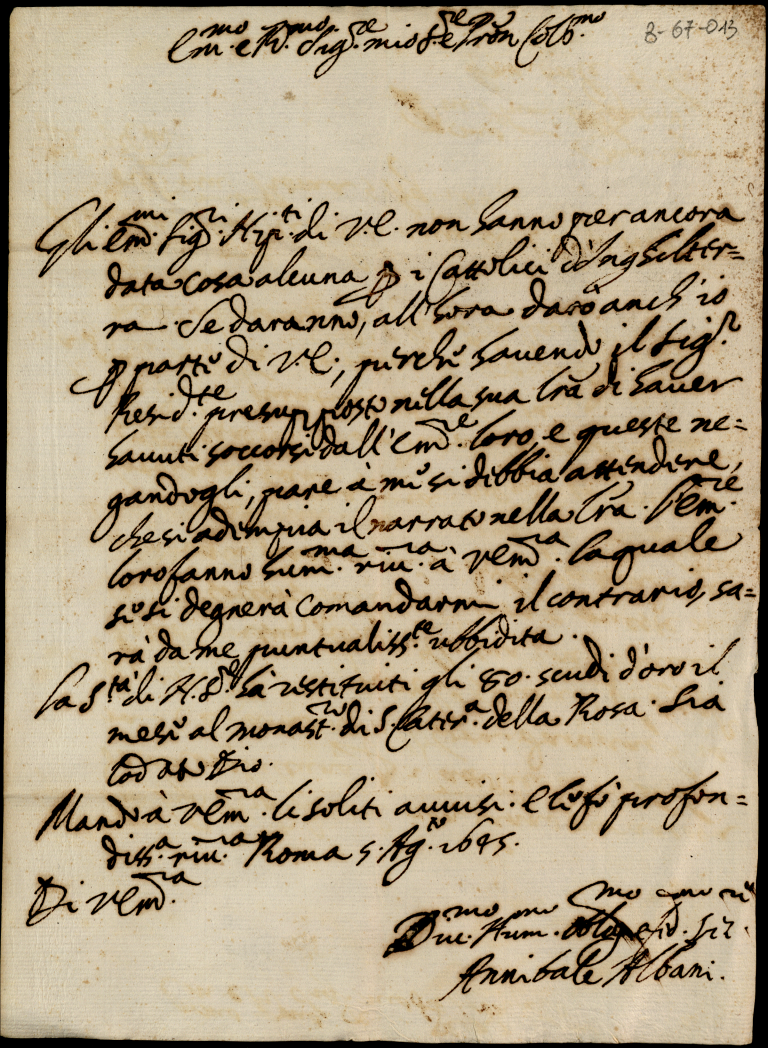 8-67-013
Em.mo e R.mo Sig.re mio S.re e Pron Colo.mo
Gli Em.mi Sig.ri Nip.ti di V.E. non hanno per ancora
data cosa alcuna p i Cattolici d'Inghilter=
ra. Se daranno, all'hora darò anch'io
p parte di V.E., perche havendo il Sig.r
Resid.te presupposto nella sua lra di haver
havuti soccorsi dall'Em.ze loro, e queste ne=
gandogli, pare à me si debbia attendere,
che si adempia il narrato nella lra. l'Em.ze
loro fanno hum.ma riu.a à V.Em.a laquale
se si degnerà Comandarmi il contrario, sa=
rà da me puntualiss.te ubbidita.
La S.tà di N.S.re hà restituiti gli 80. scudi d'oro il
mese al monast.rio di S. Cater.a della Rosa. Sia
lodato Dio.
Mando à V.Em.a li soliti avvisi: E le fò profon=
diss.a riu.a Roma 5. Ag.to 1645.
Di V.Em.a
Div.mo Hum.mo Oblig.mo
Annibale Albani.